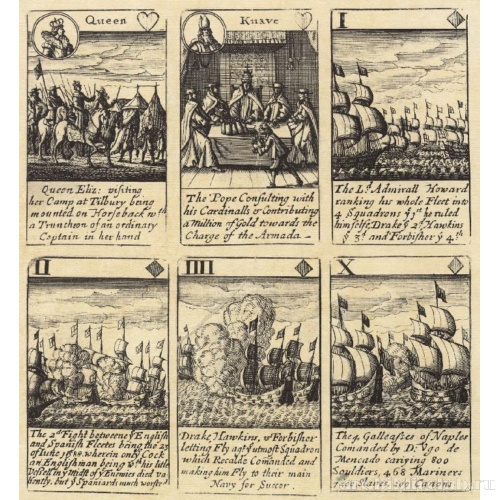 Queen
Queen Eliz: visiting
her Camp at Tilbury being
mounted on Horseback wth
a Truntcheon of an ordinary
Captain in her hand
Knave
The Pope Consulting with
his Cardinalls & Contributing
a Million of Gold towards the
Charge of the Armada
I
The Ld. Admirall Howard
ranking his whole Fleet into
4 Squadrons ye 1st he ruled
himselfe, Drake ye 2d Hawkins
ye 3d and Forbisher ye 4th
II
The 2d Fight betweene ye English
and Spanish Fleetes being the 23
of Iune 1588 wherein only Cock
an Englishman being wth his little
Vessell in ye midst of Enemies died
but ye Spaniards much worsted
IIII
Drake, Hawkins, & Forbisher
letting Fly agst ye utmost Squadron
which Recalde Comanded and
making him Fly to their main
Navy for Succor.
X
The 4 Galleasses of Naples
Comanded by D: Vgo de
Mencado carring 800
Souldiers, 468 Mariners